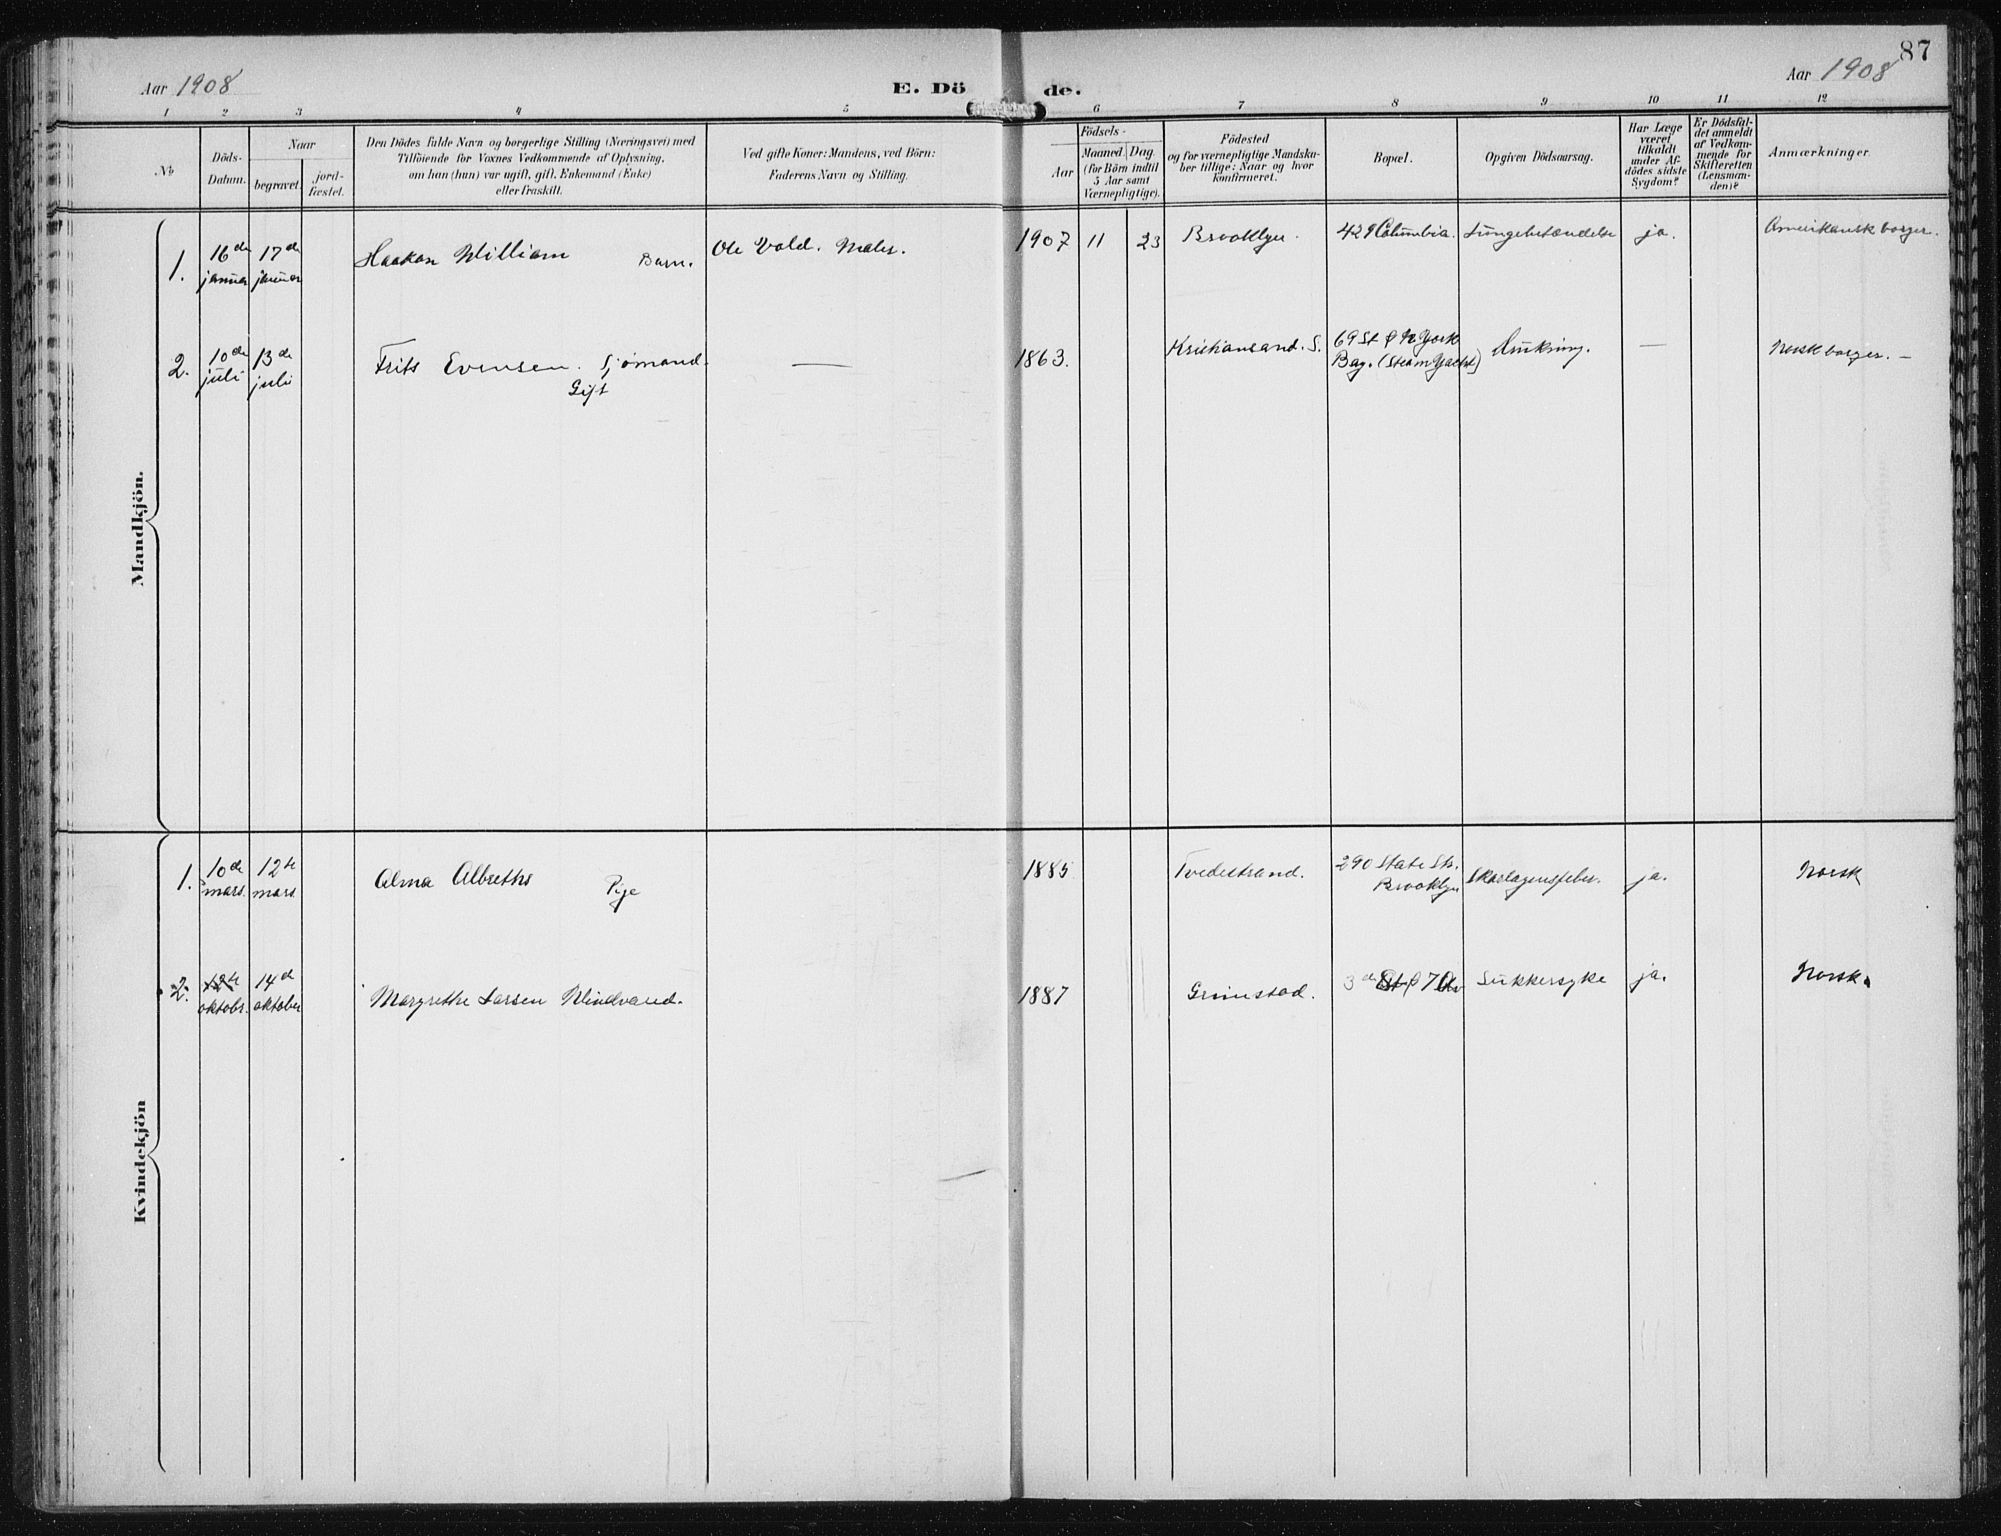 87
Aar 1908
E. Dö de.
Aar 1908
1 2 3 4 5 6 7 8 9 10 11 12
No
Döds-
Datum.
Naar
begravet.
jord-
fæstet.
Den Dödes fulde Navn og borgerlige Stilling (Næringsvei) med
Tilföiende for Voxnes Vedkommende af Oplysning,
om han (hun) var ugift, gift, Enkemand (Enke)
eller fraskilt.
Ved gifte Koner: Mandens, ved Börn:
Faderens Navn og Stilling.
Födsels-
Aar
Maaned.
Dag.
(for Börn indtil
5 Aar samt
Værnepligtige).
Födested
og for værnepligtige Mandska-
ber tillige: Naar og hvor
konfirmeret.
Bopæl.
Opgiven Dödsaarsag.
Har Læge
været
tilkaldt
under Af-
dödes sidste
Sygdom?
Er Dödsfal-
det anmeldt
af Vedkom-
mende for
Skifteretten
(Lensman-
den)?
Anmærkninger.
Mandkjön.
1. 16de januar 17de januar Haakon William Barn. Ole Vold. Maler. 1907 11 23 Brooklyn. 429 Columbia. Lungebetændelse ja. Amerikansk borger.
2. 10de juli 13de juli Frits Evensen. Sjømand. Gift — 1863. Kristiansand. S. 69 St & N York Bay. (Steam Yacht) Drukning. — Norsk borger. —
Kvindekjön
1. 10de mars. 12te mars. Alma Albreths Pige 1885 Tvedestrand. 290 State Str. Brooklyn Skarlagensfeber. ja. Norsk
2. 12te oktobr. 14de oktober Margrethe Larsen Mindvand. 1887 Grimstad. 3de St & 7 Av Sukkersyke ja. Norsk.